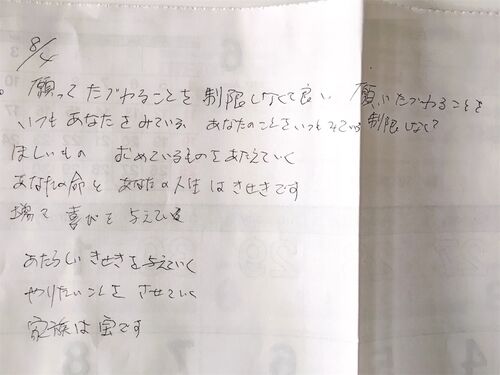 8/4
願って たずねることを 制限しなくて良い 願い たずねることを
いつもあなたをみている あなたのことをいつもみている 制限しなくて
ほしいもの 求めているものをあたえていく
あなたの命と あなたの人生は きせきです
喜びを与えている
あたらしい きせきを与えていく
やりたいことを させていく
家族は宝です